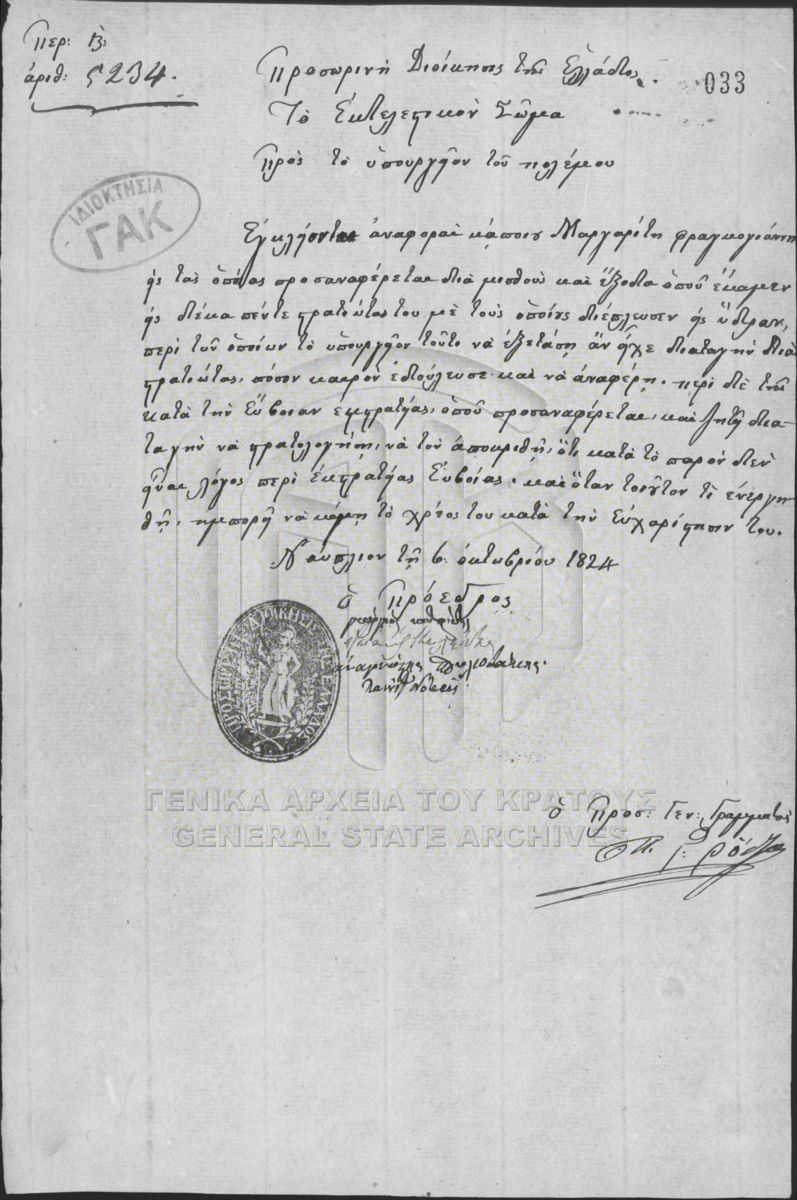 Περ: Β:
ἀριθ: 5234.
Προσωρινὴ Διοίκησις τῆς Ἑλλάδος.
033
Τὸ Ἐκτελεστικὸν Σῶμα
Πρὸς τὸ ὑπουργῆον τοῦ πολέμου
ΙΔΙΟΚΤΗΣΙΑ
ΓΑΚ
Ἐγκλήονται ἀναφοραὶ κάποιου Μαργαρίτη φραγκογιάννη
ἠς τὰς ὁποίας προσαναφέρεται διὰ μισθοὺς καὶ ἔξοδα ὁποῦ ἔκαμεν
ἠς δέκα πέντε στρατιώτας του μὲ τοὺς ὁποίους διέπλευσεν ἠς ὕδραν,
περὶ τῶν ὁποίων τὸ ὑπουργῆον τοῦτο νὰ ἐξετάση ἂν ἦχε διαταγὴν διὰ
στρατιώτας, πόσον καιρὸν ἐδούλευσε καὶ νὰ ἀναφέρη. περὶ δὲ τῆς
κατὰ τὴν Εὔβοιαν ἐκστρατήας, ὁποῦ προσαναφέρεται, καὶ ζητῆ δια-
ταγὴν νὰ στρατολογήση, νὰ τὸν ἀποκριθῆ, ὅτι κατὰ τὸ παρὸν δὲν
ἦναι λόγος περὶ ἐκστρατήας Εὐβοίας. καὶ ὅταν τοιοῦτον τὶ ἐνεργη-
θῆ, ἠμπορῆ νὰ κάμη τὸ χρέος του κατὰ τὴν εὐχαρίστησίν του.
Ναύπλιον τῆ 6 ὀκτωβρίου 1824
ὁ Πρόεδρος
ΠΡΟΣΩΡΙΝΗ ΔΙΟΙΚΗΣΙΣ ΤΗΣ ΕΛΛΑΔΟΣ
ΓΕΝΙΚΑ ΑΡΧΕΙΑ ΤΟΥ ΚΡΑΤΟΥΣ
GENERAL STATE ARCHIVES
ὁ Προσ: Γεν: Γραμματεὺς